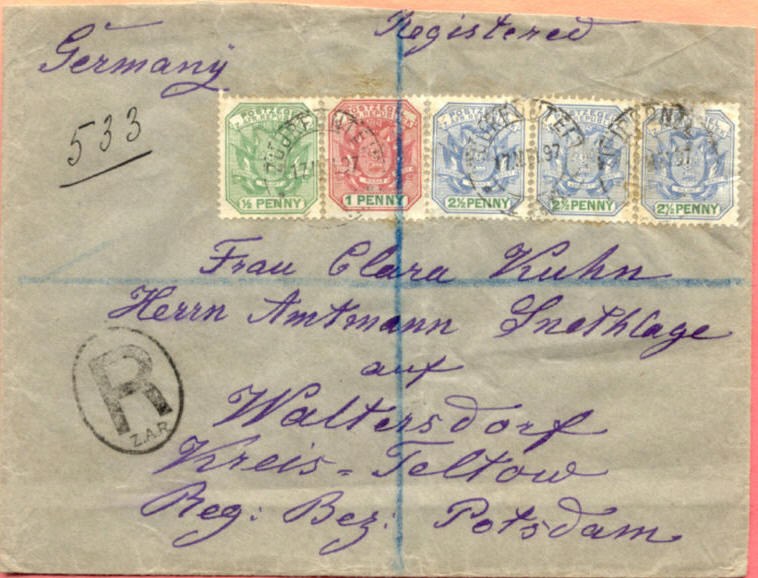 Registered
Germany
533
POSTZEGEL POSTZEGEL POSTZEGEL POSTZEGEL POSTZEGEL
97 17 97 97
½ PENNY 1 PENNY 2½ PENNY 2½ PENNY 2½ PENNY
Frau Clara Kuhn
Herrn Amtmann Snethlage
auf
R
Z.A.R.
Waltersdorf
Kreis = Teltow
Reg: Bez: Potsdam